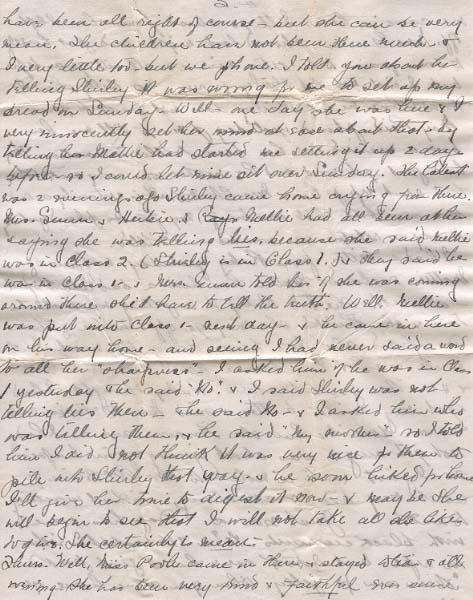 2.
have been all right of course - but she can be very
mean. The children have not been there much - &
I very little too - but we phone. I told you about her
telling Shirley it was wrong for me to set up my
bread on Sunday - Well - one day she was here & I
very innocently set her mind at ease about that - by
telling her Mattie had started me setting it up 2 days
before - so I could let mine sit over Sunday. The latest
was 2 evenings ago Shirley came home crying from there.
Mrs. & Nellie had all been at her
saying she was telling lies, because she said Nellie
was in Class 2. (Shirley is in Class 1.) & they said he
was in Class 1 - & Mrs. told her if she was coming
around there she'd have to tell the truth. Well, Nellie
was put into Class 1 - next day - & he came in here
on his way home - and seeing I had never said a word
to all her "sharpness" I asked him if he was in Class
1 yesterday & he said "No" & I said Shirley was not
telling lies then - & he said No - & I asked him who
was telling them, & he said "My mother" so I told
him I did not think it was very nice for them to
pile into Shirley that way - & he soon hiked for home
I'll give her time to digest it now - & maybe she
will begin to see that I will not take all she likes
to give. She certainly is mean.
Thurs. Well, Miss Poole came in there, & stayed & all
evening She has been very kind & faithful ever since